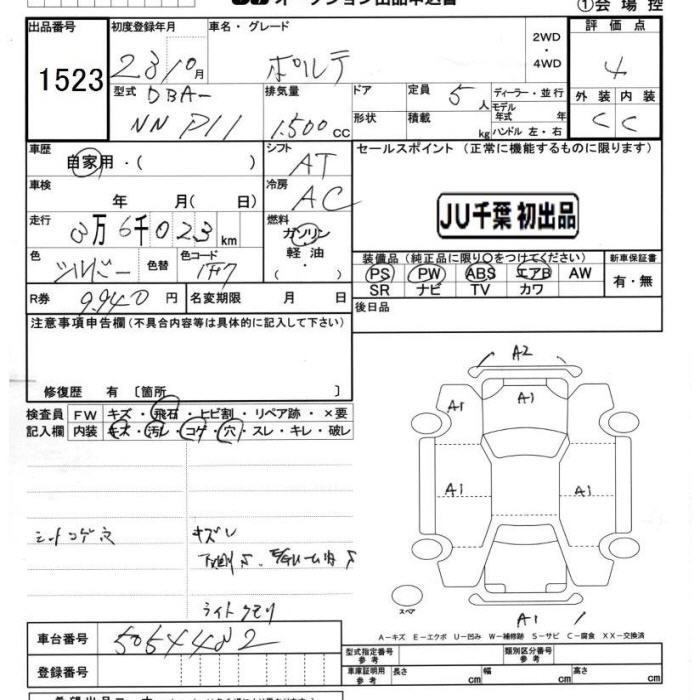 オークション出品申込書
①会場控
出品番号 1523
初度登録年月 23/10月
車名・グレード ポルテ
2WD・4WD
評価点 4
型式 DBA-NNP11
排気量 1.500CC
ドア
形状
定員 5人
積載 kg
ディーラー・並行
モデル年式 年
ハンドル 左・右
外装 C
内装 C
車歴 自家用・( )
シフト AT
セールスポイント (正常に機能するものに限ります)
JU千葉 初出品
車検 年 月( 日)
冷房 AC
走行 3万6千023km
燃料 ガソリン・軽油・
色 シルバー 色替
色コード 1F7
装備品(純正品に限り○をつけてください)
PS PW ABS エアB AW
SR ナビ TV カワ
新車保証書 有・無
R券 9.940円
名変期限 月 日
後日品
注意事項申告欄(不具合内容等は具体的に記入して下さい)
修復歴 有〔箇所 〕
検査員記入欄
FW キズ・飛石・ヒビ割・リペア跡・×要
内装 キズ・汚レ・コゲ・穴・スレ・キレ・破レ
シートコゲ穴
キズレ
ライトクモリ
A2
A1 A1
A1 A1
A1
スペア
A−キズ E−エクボ U−凹み W−補修跡 S−サビ C−腐食 XX−交換済
車台番号 5054482
登録番号
型式指定番号 参考
類別区分番号 参考
車庫証明用 参考 長さ cm 幅 cm 高さ cm